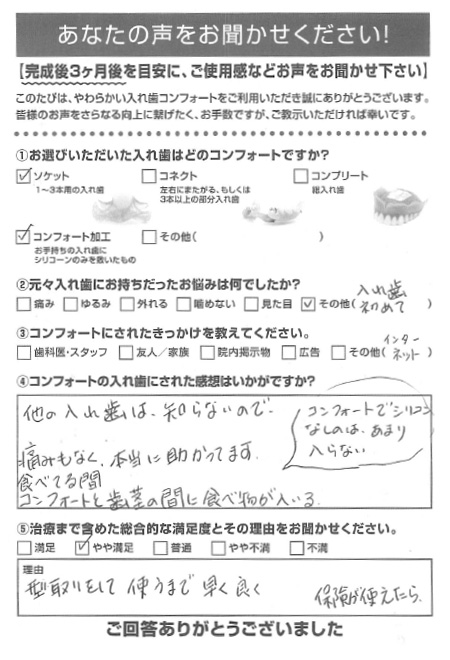 あなたの声をお聞かせください!
【完成後3ヶ月後を目安に、ご使用感などお声をお聞かせ下さい】
このたびは、やわらかい入れ歯コンフォートをご利用いただき誠にありがとうございます。
皆様のお声をさらなる向上に繋げたく、お手数ですが、ご教示いただければ幸いです。
①お選びいただいた入れ歯はどのコンフォートですか?
☑ソケット □コネクト □コンプリート
1～3本用の入れ歯 左右にまたがる、もしくは 総入れ歯
3本以上の部分入れ歯
☑コンフォート加工 □その他( )
お手持ちの入れ歯に
シリコーンのみを敷いたもの
②元々入れ歯にお持ちだったお悩みは何でしたか?
入れ歯
□痛み □ゆるみ □外れる □噛めない □見た目 ☑その他( 初めて )
③コンフォートにされたきっかけを教えてください。
インター
□歯科医・スタッフ □友人/家族 □院内掲示物 □広告 □その他( ネット )
④コンフォートの入れ歯にされた感想はいかがですか?
他の入れ歯は、知らないので、
痛みもなく、本当に助かってます。
食べてる間
コンフォートと歯茎の間に食べ物が入いる。
コンフォートでシリコン
なしのは、あまり
入らない
⑤治療まで含めた総合的な満足度とその理由をお聞かせください。
□満足 ☑やや満足 □普通 □やや不満 □不満
理由
型取りをして使うまで早く良く
保険が使えたら。
ご回答ありがとうございました